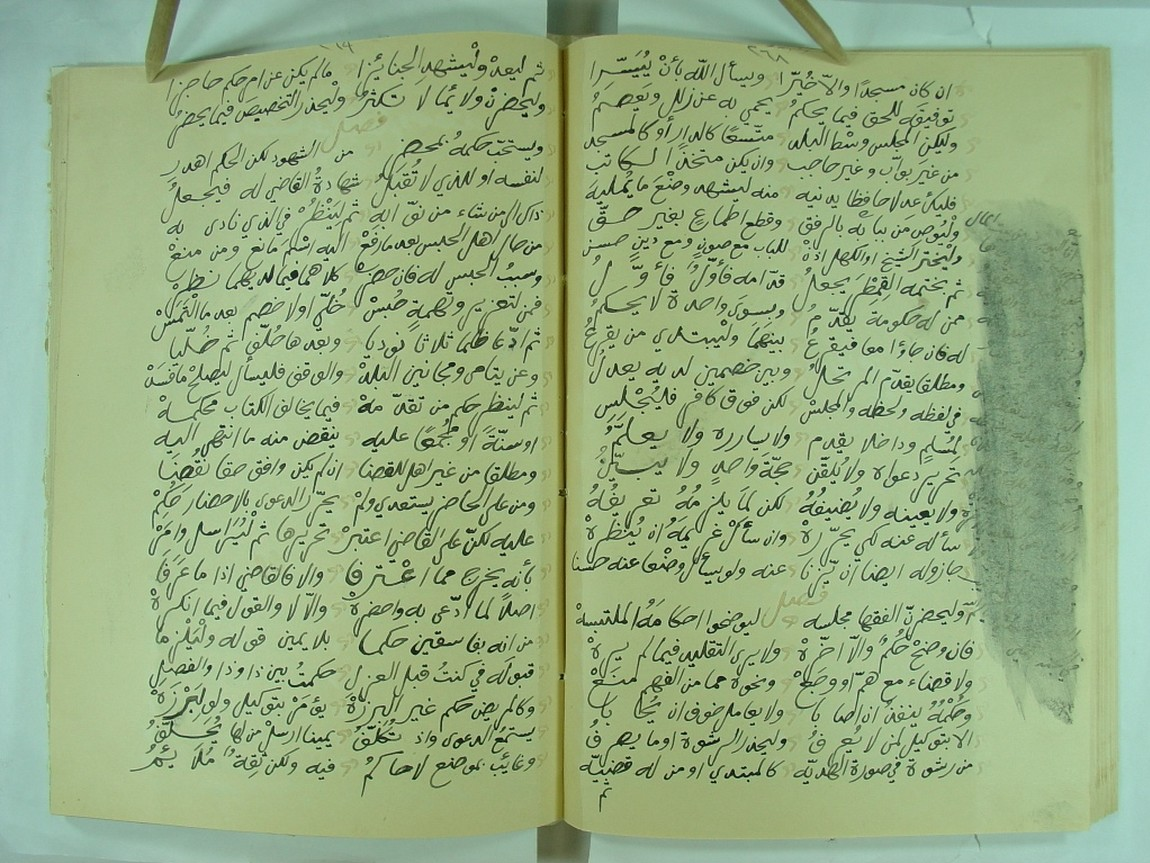 ان كان مسجدًا والاّ خُيّرا ويسأل اللّه بأنْ يُيَسّرا
توفيقَه للحق فيما يحكمُ يحمي به عن زللٍ ويَعصِمُ
وليكن المجلس وسْط البلد متّسعًا كالدار أو كالمسجد
من غير بوّاب وغير حاجب وان يكن متخذا الكاتب
فليك عدلا حافظا يدنيه منه ليشهد وضْعَ ما يُمليهَ
ولْيُوصِ من ببابه بالرفق وقطع اطماعٍ بغير حقّ
وليختر الشيخ او الكهل اذا للباب مع صونٍ ومع دينٍ حسن
ثم بختمه القِمَطْرَ يجعلُ قدامه فأوّلٌ فأوّلُ
ممن له حكومة يقدّمُ وبسوى واحدة لا يحكمُ
له فان جاؤا معا فيقرعُ بينهما وليبتدي من يقرعُ
ومطلقا يقدّم المرتحلُ وبين خصمين لديه يعدلُ
في لفظه ولحظه والمجلسْ لكن فوق كافر فليُجلس
لمسْلمٍ وداخلا يقدم ولا يسارره ولا يعلّمُ
تحرير دعواه ولا يُلقّنُ حجّةَ واحدٍ ولا يبيّنُ
ولا يعينه ولا يُضيفُهُ لكن لما يلزمُهُ تعريفُهُ
سأله عنه لكي يحرّرهْ وان سأل غريمَهُ ان يُنظرهْ
جاز له ايضا ان يزنا عنه ولو يسأل وضْعا عنه حسنا
فصل
وليحضرنّ الفقها مجلسه ليوضحوا احكامَهُ الملتبسهْ
فان وضحْ حُكمٌ والّا اخّرهْ ولا يرى التقليد فيما لم يرهْ
ولا قضاء مع همّ او وجعْ ونحوه مما من الفهم منعْ
وحُكْمُهُ ينفذُ ان اصابا ولا يعامل خوف ان يُحابا
الا بتوكيل لمن لا يُعرفُ وليحذر الرشوة او ما يصرفُ
من رشوة في صورة الهديّه كالمبتدي او من له قضيّه
ثم
ثم ليعدْ ولْيشهد الجنائزا ما لم يكن عن امر حكم حاجزا
وليحضرنْ ولائما لا تكثرُ وليحذر التخصيص فيما يحضرُ
فصل
ويستحبّ حكمهُ بمحضر من الشهود لكن الحكم اهدر
لنفسه او للذي لا تُقبلُ شهادةُ القاضي له فيجعلُ
ذاك الى من شاء من نوّابه ثم لينظُرْ في الذي نادى به
من حال اهل الحبس بعد ما رفعْ اليه اسْم مانع ومن منعْ
وسببُ الحبس له فان حضر كلاهما فيما لديهما نظرْ
فمن لتعزيرٍ وتهمةٍ حُبسْ خُلّي او لا خصم بعد ما التُمسْ
ثم ادّعا ظلما ثلاثا نوديا وبعدها حُلّف ثم خُلّيا
وعن يتامى ومجانين البلدْ والوقف فليسأل ليصلح ما فسدْ
ثم لينظر حكم من تقدّمهْ فيما يخالف الكتاب محكمهْ
او سنّةً او مُجْمَعًا عليه ينقض منه ما انتهى اليه
ومطلقا من غير اهلٍ للقضا ان لم يكن وافق حقا نُقضا
ومن على الحاضر يستعدي ولمْ يحرّر الدعوى بالاحضار حَكمْ
عليه لكنْ على القاضي اعتبرْ تحريرها ثم ليُراسل وامرْ
بأنه يخرج مما اعْترفا والا فالقاضي اذا ما عَرَفا
اصلًا لما ادّعى به واحضرهْ والّا لا والقول فيما انكرهْ
من انه بفاسقين حكما بلا يمين قوله وليُلْزما
قبولَه في كنتُ قبل العزل حكمتُ بين ذا وذا والفصل
وكالمريض حكم غير البرزهْ يؤمرْ بتوكيل ولو لبرزهْ
يستمعُ الدعوى واذ تُكلّفُ يمينا ارسل من لها يُحلّفُ
وغائبٌ بموضع لا حاكمُ فيه ولكن ثِقةٌ مُلائمُ